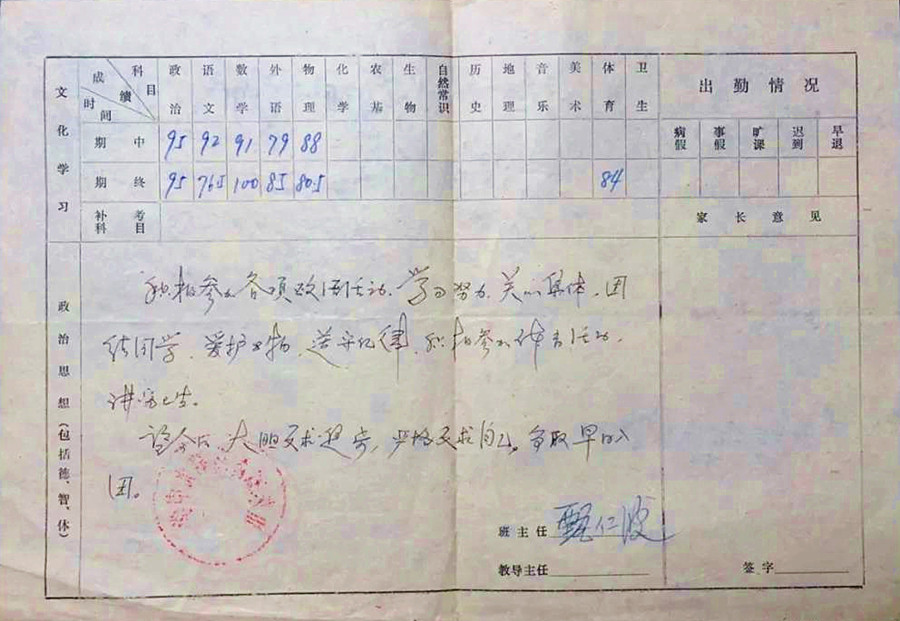 文化学习
科目
成绩
时间
政治 语文 数学 外语 物理 化学 农基 生物 自然常识 历史 地理 音乐 美术 体育 卫生
出勤情况
病假 事假 旷课 迟到 早退
期中 95 92 91 79 88
期终 95 76.5 100 85 80.5 84
补考科目
家长意见
政治思想(包括德、智、体)
积极参加各项政治活动、学习努力、关心集体、团
结同学、爱护公物、遵守纪律、积极参加体育活动,
讲究卫生。
望今后大胆要求进步,严格要求自己。争取早日入
团。
班主任 甄仁波
教导主任
签字